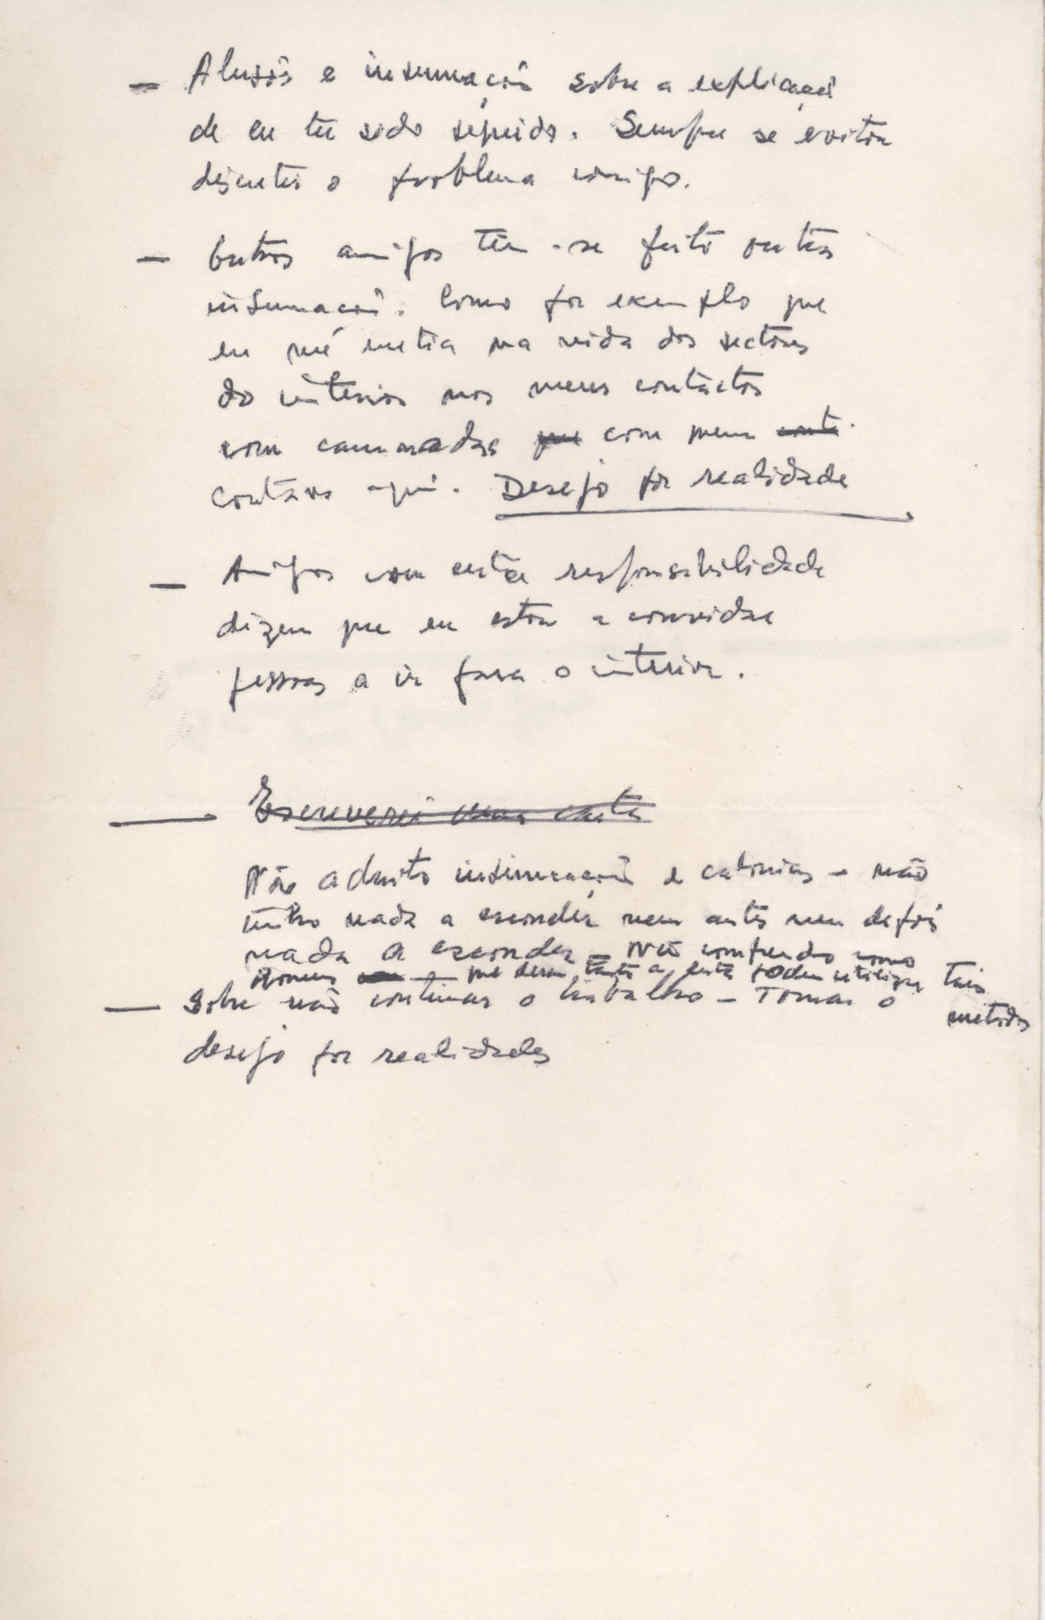 — Alusões e insinuação sobre a explicação
de eu ter sido seguido. Sempre se evitou
discutir o problema comigo.
— Outros amigos têm-se feito outras
insinuação. Como por exemplo que
eu me metia na vida dos sectores
do interior nos meus contactos
com camaradas que com quem
contava aqui. Desejo por realidade
— Amigos com certa responsabilidade
dizem que eu estou a convidar
pessoas a ir para o interior.
— Escreverei uma carta
Não admito insinuação e calúnias - não
tenho nada a esconder nem antes nem depois
nada a esconder - Não compreendo como
Homens que deram tanto a luta podem utilizar tais
— Sobre não continuar o trabalho - Tomar o métodos
desejo por realidades